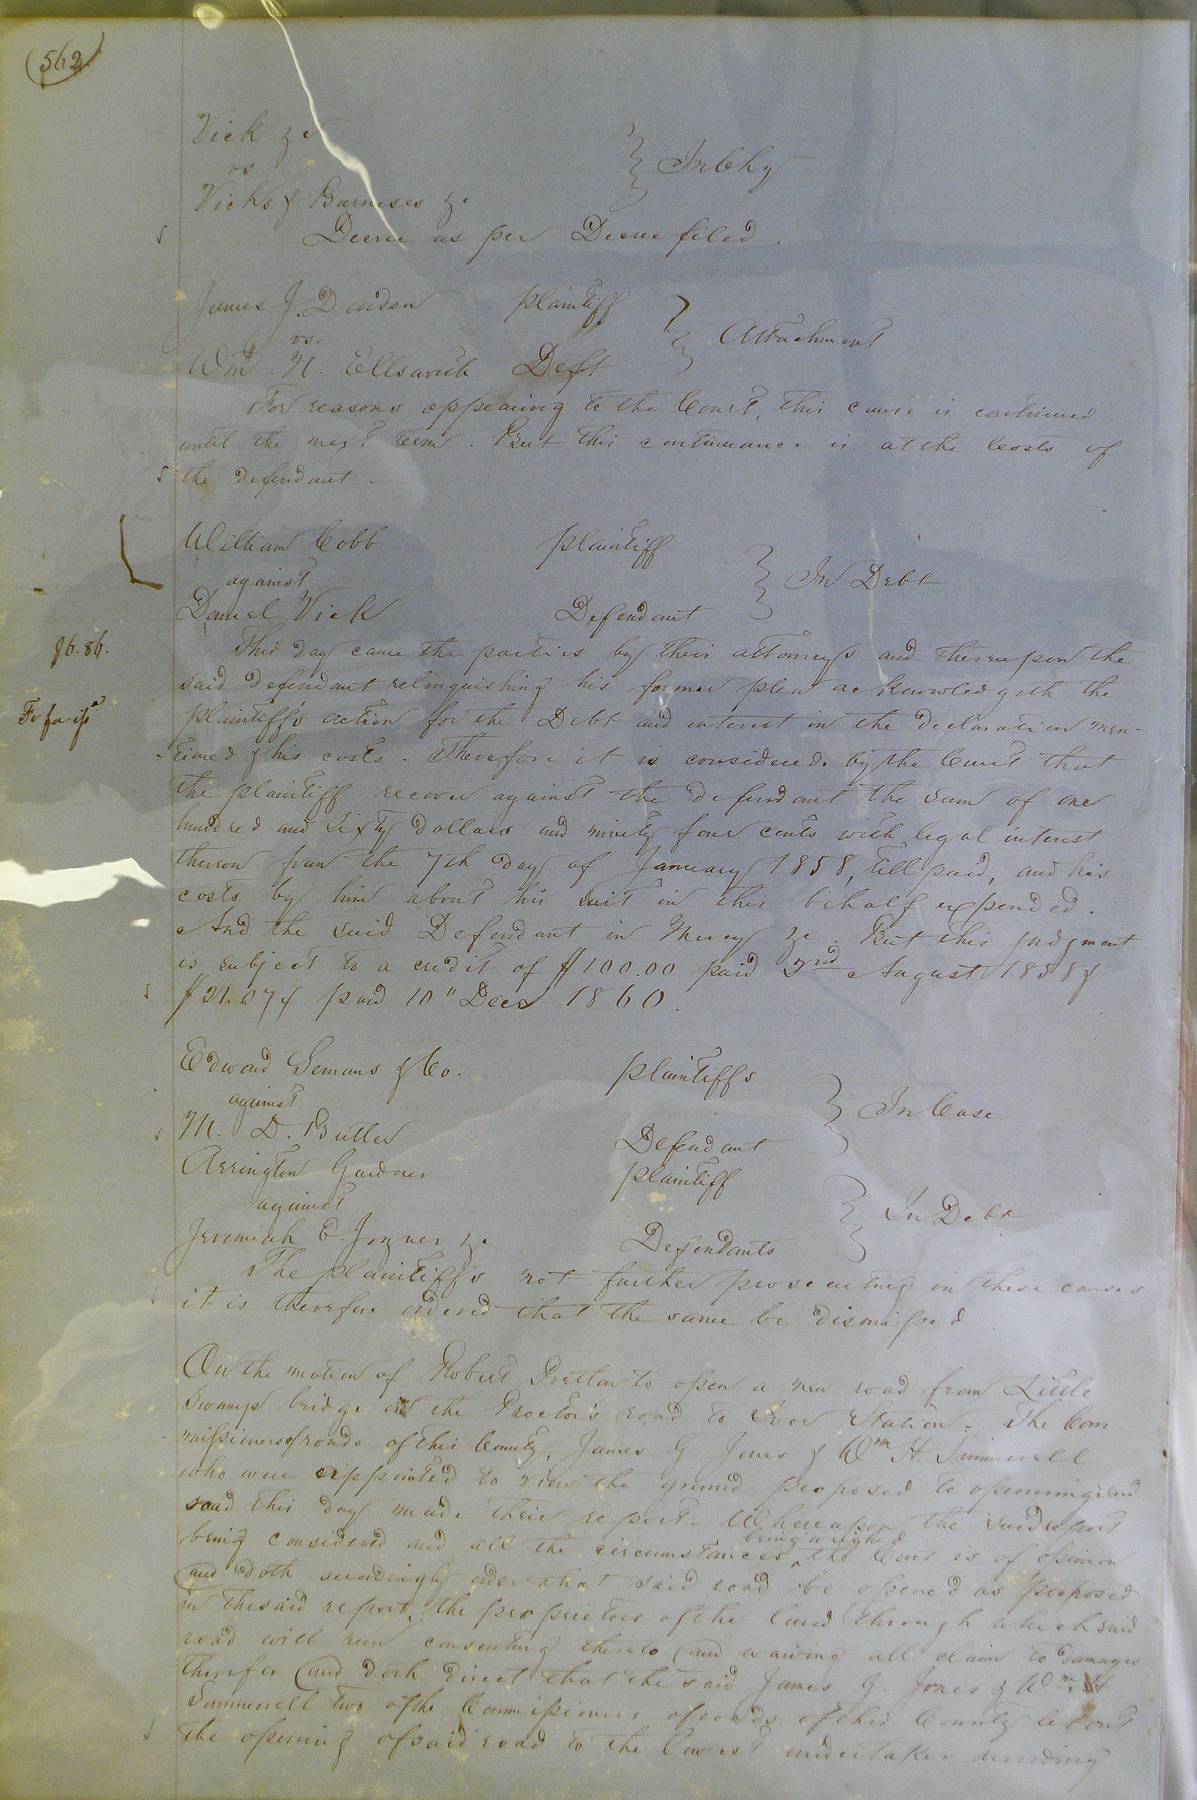 (562)
Vick &c
vs
Vicks & Barneses &c.
In Chy
Decree as per Decree filed.
James J. Darden plaintiff
vs.
Wm. N. Ellsworth Deft
Attachment
For reasons appearing to the Court, this cause is continued
until the next term. But this continuance is at the costs of
the defendant.
William Cobb plaintiff
against
Daniel Vick Defendant
In Debt
$6.86.
This day came the parties by their attorneys and thereupon the
said defendant relinquishing his former plea acknowledgeth the
Fi fa issd
plaintiff's action for the Debt and interest in the declaration men-
tioned & his costs. Therefore it is considered by the Court that
the plaintiff recover against the defendant the sum of one
hundred and sixty dollars and ninety four cents with legal interest
thereon from the 7th day of January 1858, till paid, and his
costs by him about his suit in this behalf expended.
And the said Defendant in Mercy &c. But this judgment
is subject to a credit of $100.00 paid 3rd August 1858 &
$21.07¼ paid 10" Decr 1860.
Edward Semans & Co. plaintiffs
against
M. D. Butler Defendant
In Case
Arrington Gardner plaintiff
against
Jeremiah E. Joyner &c. Defendants
In Debt
The plaintiffs not further prosecuting in these causes
it is therefore ordered that the same be dismissed
On the motion of Robert to open a new road from Little
Swamp bridge on the Proctor's road to Ivor Station. The Com
missioners of roads of this County, James G Jones & Wm H. Summerell
who were appointed to view the ground proposed to opening said
road this day made their report. Whereupon the said report
being considered and all the circumstances being weighed the Court is of opinion
and doth accordingly order that said road be opened as proposed
in the said report, the proprietors of the land through which said
road will run consenting thereto (and waiving all claim to damages
therefor) and doth direct that the said James G. Jones & Wm H
Summerell two of the Commissioners of roads of this County let out
the opening of said road to the lowest undertaker according